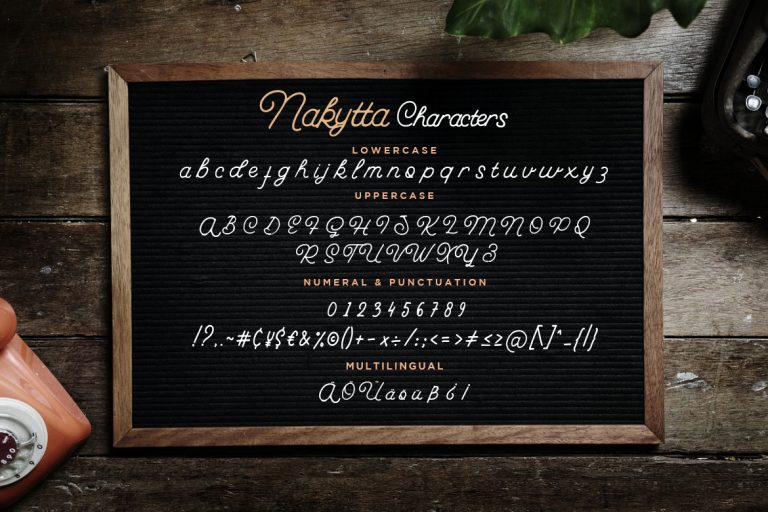 Nakytta Characters
LOWERCASE
abcdefghijklmnopqrstuvwxyz
UPPERCASE
ABCDEFGHIJKLMNOPQ
RSTUVWXYZ
NUMERAL & PUNCTUATION
0123456789
!?,.~#¢¥$€&%©()+-x÷/:;<=>≠≤≥@[\]^_{|}
MULTILINGUAL